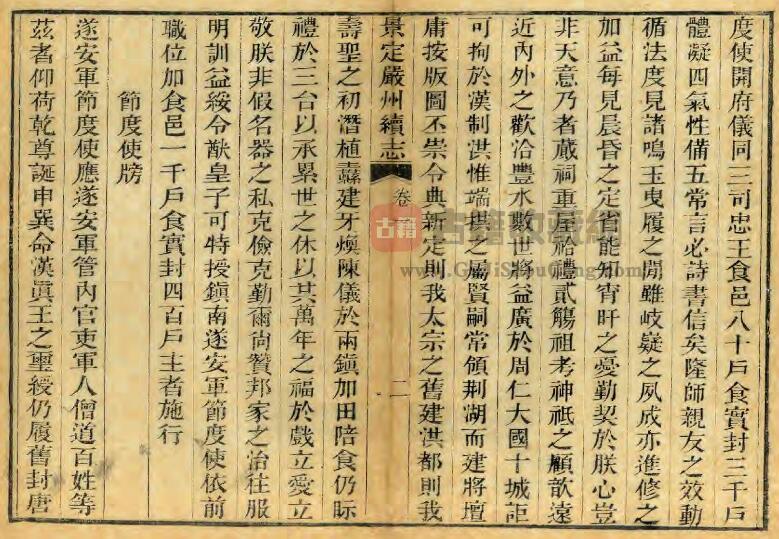 度使開府儀同三司忠王食邑八十戶食實封三千戶
體凝四氣性備五常言必詩書信矣隆師親友之效動
循法度見諸鳴玉曳履之閒雖岐嶷之夙成亦進修之
加益每見晨昏之定省能知宵旰之憂勤契於朕心豈
非天意乃者蕆祠重屋祫禮貳觴祖考神祇之顧歆遠
近內外之歡洽豐水數世將益廣於周仁大國十城詎
可拘於漢制洪惟端揆之屬賢嗣常領荆湖而建將壇
庸按版圖丕崇令典新定則我太宗之舊建洪都則我
景定嚴州續志 卷 二
壽聖之初潛植纛建牙煥陳儀於兩鎭加田陪食仍眎
禮於三台以承累世之休以其萬年之福於戲立愛立
敬朕非假名器之私克儉克勤爾尙贊邦家之治往服
明訓益綏令猷皇子可特授鎭南遂安軍節度使依前
職位加食邑一千戶食實封四百戶主者施行
節度使牓
遂安軍節度使應遂安軍管內官吏軍人僧道百姓等
茲者仰荷乾尊誕申巽命漢眞王之璽綬仍履舊封唐
古籍收藏網
www.GuJiShouCang.com